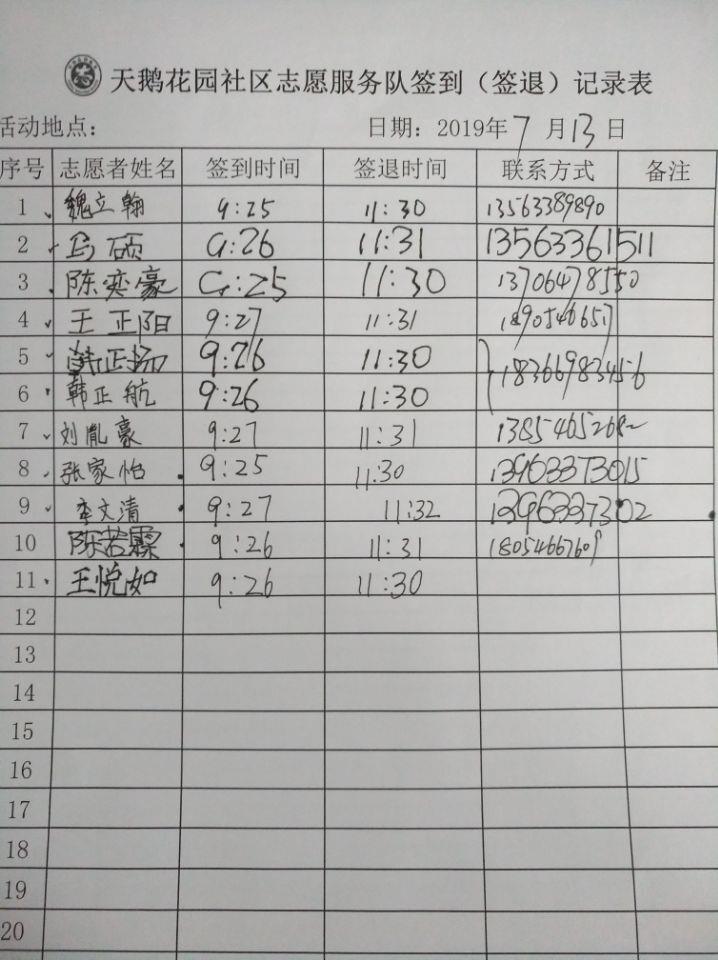 天鹅花园社区志愿服务队签到（签退）记录表
活动地点： 日期：2019年7月13日
序号 志愿者姓名 签到时间 签退时间 联系方式 备注
1 魏立翰 9:25 11:30 13563389890
2 马硕 9:26 11:31 13563361511
3 陈奕豪 9:25 11:30 13706478550
4 王正阳 9:27 11:31
5 韩正扬 9:26 11:30 18366983456
6 韩正航 9:26 11:30
7 刘胤豪 9:27 11:31
8 张家怡 9:25 11:30 13963373015
9 李文清 9:27 11:32
10 陈若霖 9:26 11:31 18054667609
11 王悦如 9:26 11:30
12
13
14
15
16
17
18
19
20